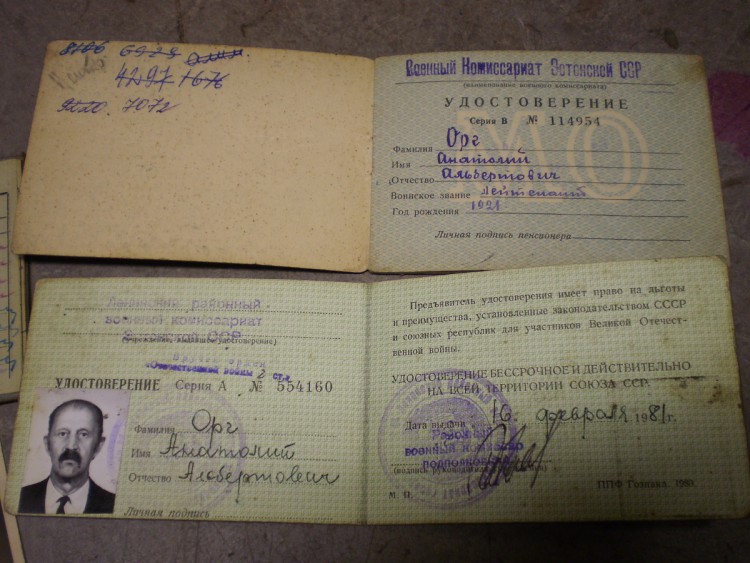 8106 6929
4297 1676
7072
Военный Комиссариат Эстонской ССР
(наименование военного комиссариата)
УДОСТОВЕРЕНИЕ
Серия В № 114954
Фамилия Орг
Имя Анатолий
Отчество Альбертович
Воинское звание Лейтенант
Год рождения 1921
Личная подпись пенсионера
Ленинский районный
военный комиссариат
Эстонской ССР
(учреждение, выдавшее удостоверение)
Вручен орден
«Отечественной войны 2 ст.»
УДОСТОВЕРЕНИЕ Серия А № 554160
Фамилия Орг
Имя Анатолий
Отчество Альбертович
Личная подпись
Предъявитель удостоверения имеет право на льготы
и преимущества, установленные законодательством СССР
и союзных республик для участников Великой Отечест-
венной войны.
УДОСТОВЕРЕНИЕ БЕССРОЧНОЕ И ДЕЙСТВИТЕЛЬНО
НА ВСЕЙ ТЕРРИТОРИИ СОЮЗА ССР.
Дата выдачи 16 февраля 1981г.
Районный
военный комиссар
подполковник
(подпись руководителя
М. П. ППФ Гознака. 1980.